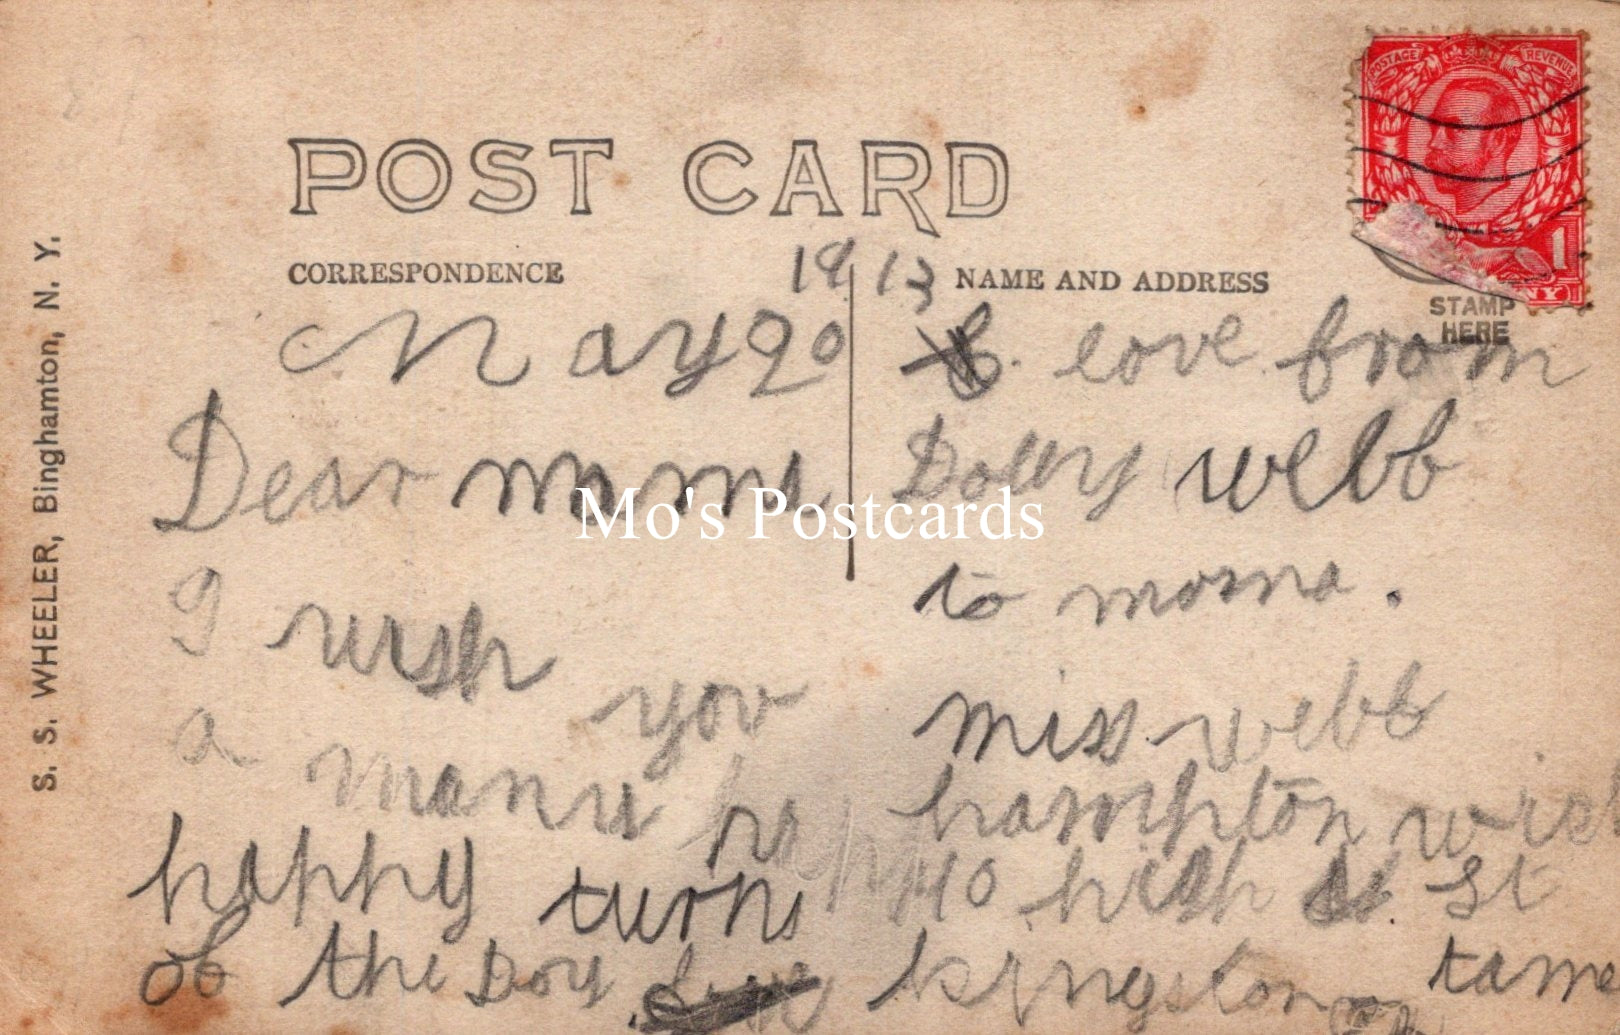 POST CARD
CORRESPONDENCE
1913
NAME AND ADDRESS
POSTAGE REVENUE
1
STAMP
HERE
May 20
Dear moma
I wish
you
a many
happy turns
of the Doy
love from
Dolly webb
to moma.
miss webb
hampton wick
40 high St
kingston tame
S. S. WHEELER, Binghamton, N. Y.
Mo's Postcards